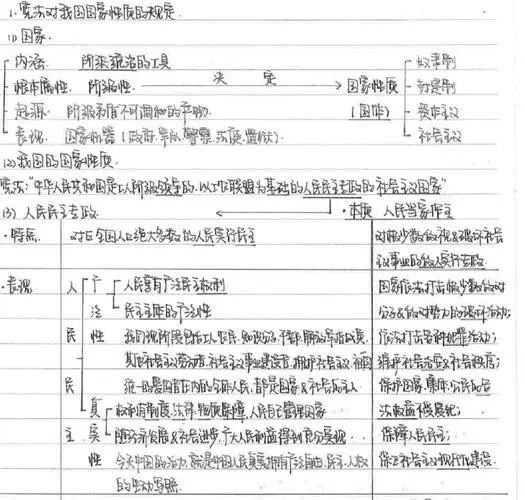 1. 宪法对我国国家性质的规定
(1) 国家
内涵: 阶级统治的工具
根本属性. 阶级性 决定 国家性质 奴隶制
封建制
起源. 阶级矛盾不可调和的产物. (国体) 资本主义
表现. 国家机器 (政府.军队.警察.法庭.监狱). 社会主义
(2) 我国的国家性质.
宪法:"中华人民共和国是工人阶级领导的.以工农联盟为基础的人民民主专政的社会主义国家"
(3) 人民民主专政 本质 人民当家作主
特点. 对占全国人口绝大多数的人民实行民主 对极少数敌视&破坏社会
主义事业的敌人实行专政
表现 人民民主 广泛性 真实性
人民享有广泛民主权利 国家依法打击极少数敌对
民主主体的广泛性 分子&敌对势力的破坏活动;
我们现阶段包括工人.农民.知识分子.干部.解放军指战员. 依法打击各种犯罪活动;
其他社会主义劳动者.社会主义事业建设者.拥护社会主义.祖国 维护社会治安&社会秩序;
统一的爱国者在内的全体人民,都是国家&社会的主人 保护国家.集体.公民的合
权利有制度.法律.物质保障,人民自己管理国家 法权益不受侵犯;
随经济发展&社会进步,广大人民利益得到充分实现. 保障人民民主;
今天中国的活力.就是中国人民真实拥有广泛自由.民主.人权 保卫社会主义现代化建设.
的生动写照